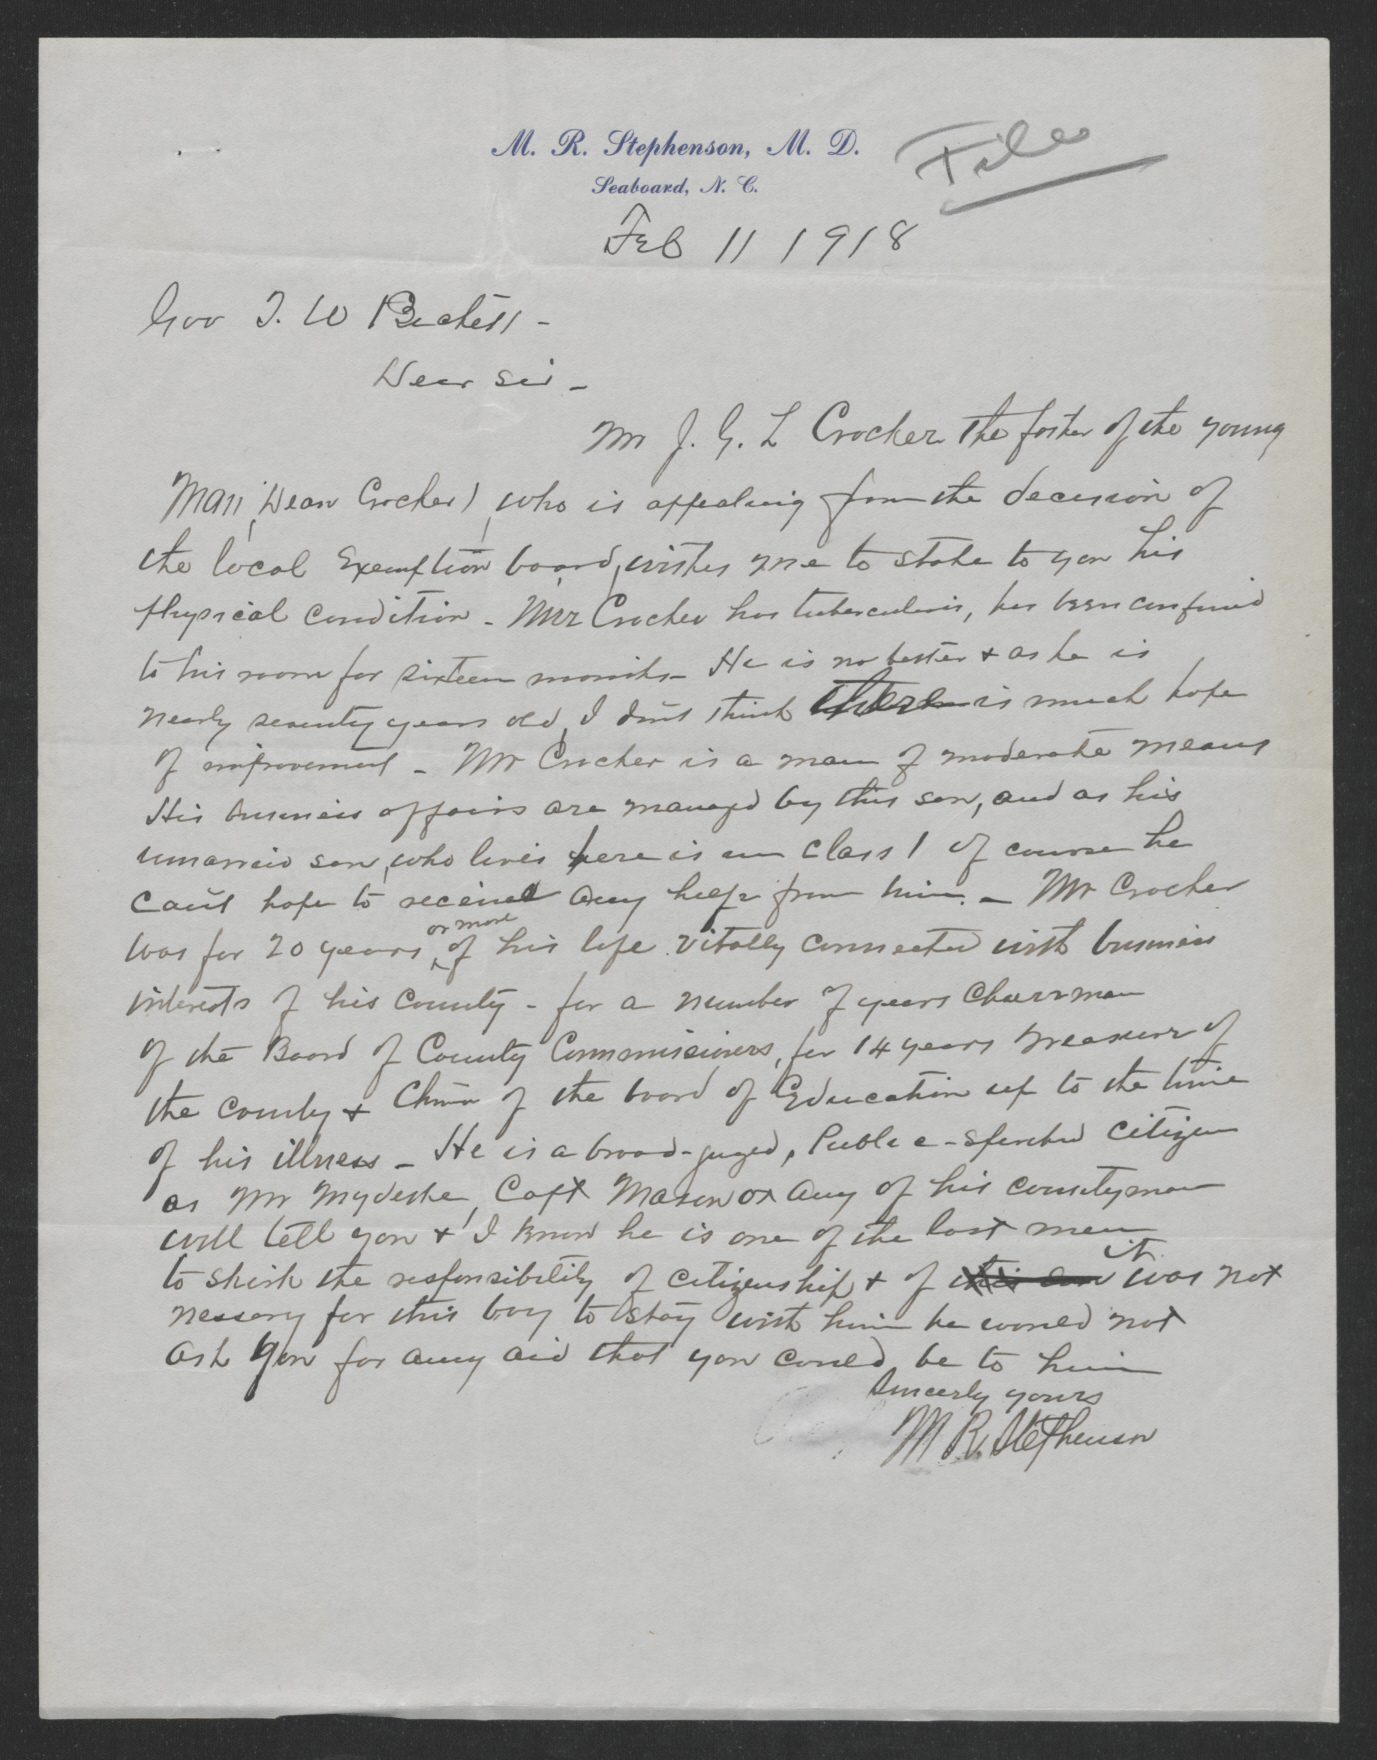 M. R. Stephenson, M. D.
Seaboard, N. C.
File
Feb 11 1918
Gov T. W Bickett -
Dear Sir -
Mr J. G. L Crocker the father of the young
Man, (Dean Crocker), who is appealing from the decision of
the local Exemption board, wishes me to state to you his
physical condition - Mr Crocker has tuberculosis, has been confined
to his room for sixteen months - He is no better & as he is
nearly seventy years old, I don't think there is much hope
of improvement - Mr Crocker is a man of moderate means
His business affairs are managed by this son, and as his
unmarried son, who lives here is in class 1 of course he
can't hope to receive any help from him. - Mr Crocker
was for 20 years or more of his life vitally connected with business
interests of his county - for a number of years Chairman
of the Board of County Commissioners, for 14 years treasurer of
the county & Chmn of the board of Education up to the time
of his illness - He is a broad-gauged, Public-spirited citizen
as Mr Capt Mason or any of his countyman
will tell you & I know he is one of the last men
to shirk the responsibility of citizenship & if it was not
nessary for this boy to stay with him he would not
ask you for any aid that you could be to him
Sincerly yours
M R. Stephenson